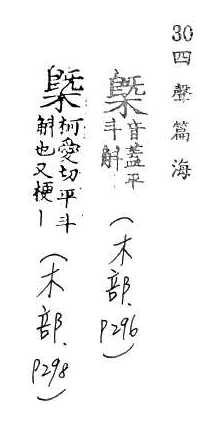 30四聲篇海
槩音蓋平
斗斛
(木部.P296)
槩柯愛切平斗
斛也又梗丨
(木部.P298)